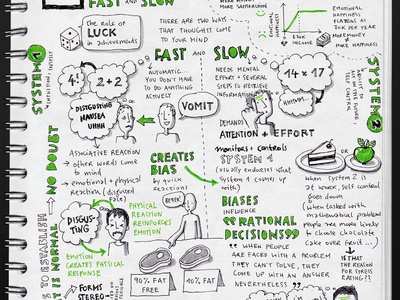 FAST and SLOW
The role of
LUCK
in achievements
THERE ARE TWO WAYS
THAT THOUGHTS COME
TO YOUR MIND
EMOTIONAL
HAPPINESS
PLATEAUS AT
INCOME
MORE MONEY
MORE HAPPINESS
FAST and SLOW
SYSTEM 1
INTUITION, INSTINCT
4!
2+2
AUTOMATIC.
YOU DON'T HAVE
TO DO ANYTHING
ACHIEVE
NEEDS MENTAL
EFFORT & SEVERAL
STEPS TO RETRIEVE
INFORMATION
14 x 17
HMMM.
SYSTEM 2
SELF CONTROL
DISGUSTING
NAUSEA
UHHH
VOMIT
DEMANDS
ATTENTION + EFFORT
monitors + controls
SYSTEM 1
(usually endorses what
system 1 comes up with)
NO DOUBT
ASSOCIATIVE REACTION
→ other words come
to mind
→ emotional + physical
reaction (disgusted
face)
CREATES
BIAS
by quick
reactions
or
when SYSTEM 2 is
at work, self control
goes down
(when tasked with
mathematical problem
people are more likely
to choose chocolate
cake over fruit...)
IS THAT
THE REASON
FOR STRESS
EATING??
BIASES
INFLUENCE
"RATIONAL
DECISIONS"
DISGUSTING
PHYSICAL
REACTION
REINFORCES
EMOTION
EMOTION
CREATES PHYSICAL
RESPONSE
EEEK!
90% FAT
FREE
10% FAT
"WHEN PEOPLE
ARE FACED WITH A PROBLEM
THEY CAN'T SOLVE, THEY
COME UP WITH AN ANSWER
NEVERTHELESS"
TO ESTABLISH
IS NORMAL
FORMS
STEREO-